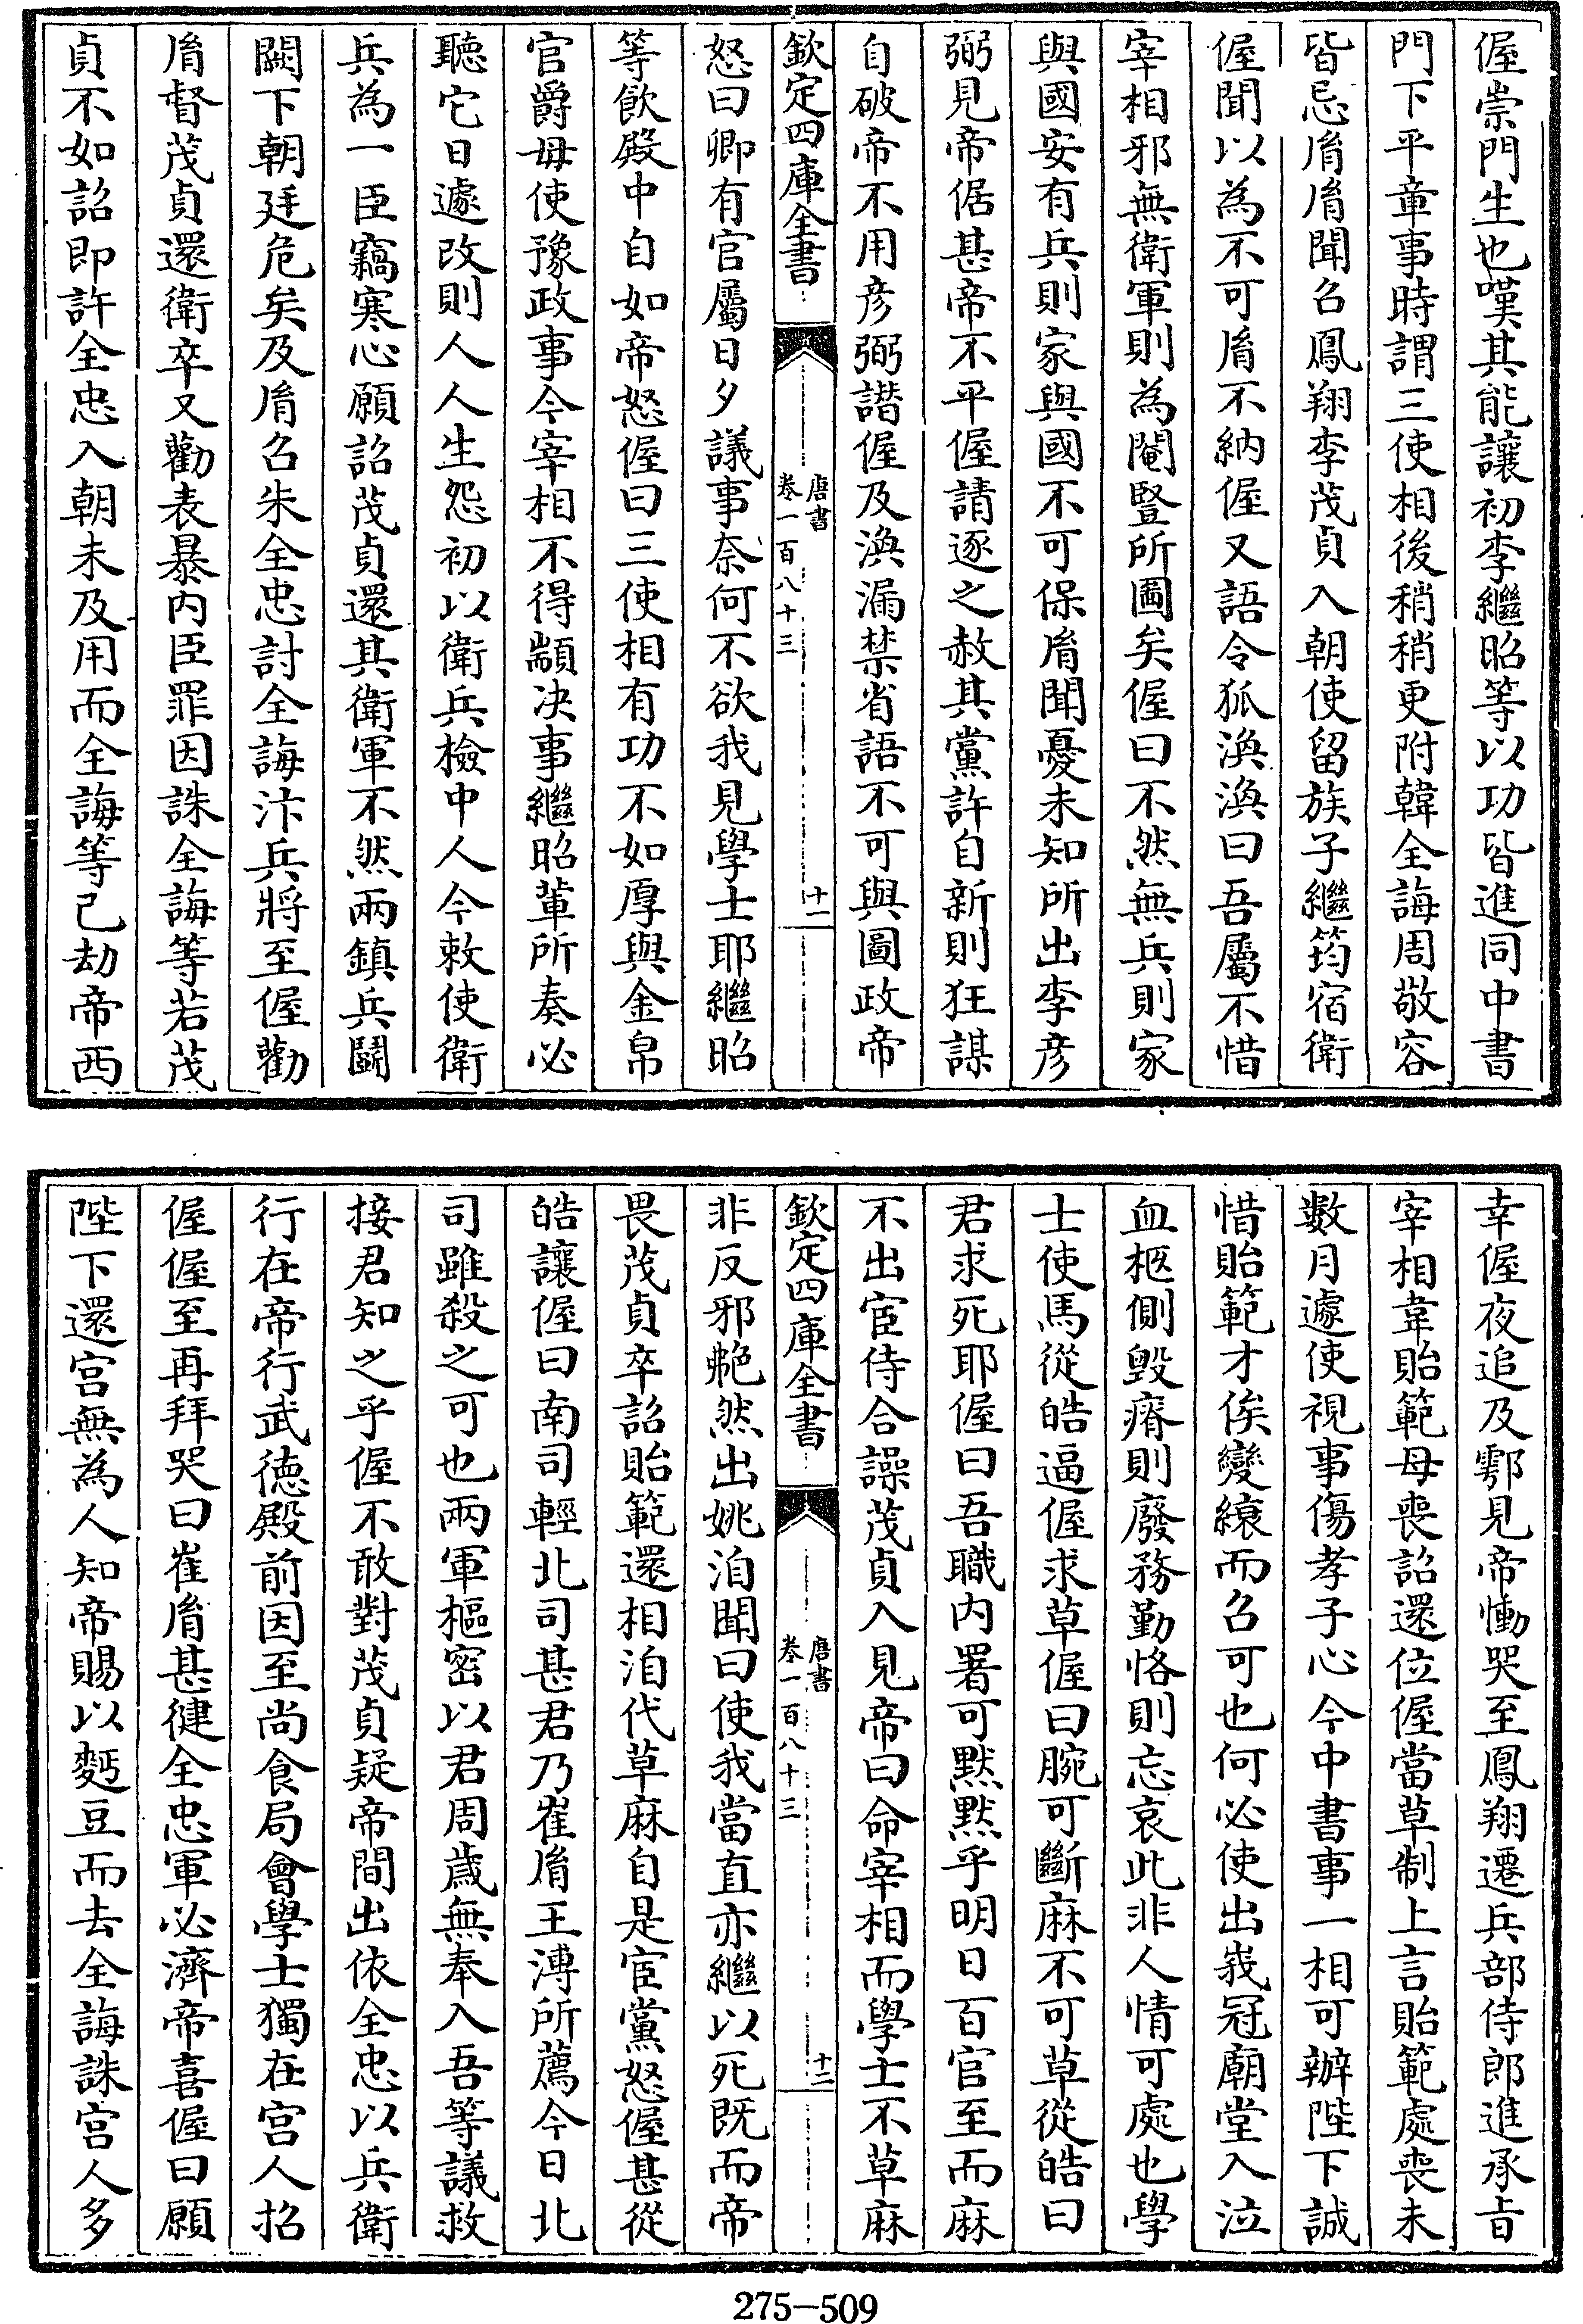 偓崇門生也嘆其能讓初李繼昭等以功皆進同中書
門下平章事時謂三使相後稍稍更附韓全誨周敬容
皆忌胤胤聞召鳳翔李茂貞入朝使留族子繼筠宿衛
偓聞以為不可胤不納偓又語令狐渙渙曰吾屬不惜
宰相邪無衛軍則為閹豎所圖矣偓曰不然無兵則家
與國安有兵則家與國不可保胤聞憂未知所出李彦
弼見帝倨甚帝不平偓請逐之赦其黨許自新則狂謀
自破帝不用彦弼譖偓及渙漏禁省語不可與圖政帝
欽定四庫全書
唐書
卷一百八十三
十一
怒曰卿有官屬日夕議事奈何不欲我見學士耶繼昭
等飲殿中自如帝怒偓曰三使相有功不如厚與金帛
官爵毋使豫政事今宰相不得顓決事繼昭輩所奏必
聽它日遽改則人人生怨初以衛兵檢中人今敕使衛
兵為一臣竊寒心願詔茂貞還其衛軍不然兩鎮兵鬭
闕下朝廷危矣及胤召朱全忠討全誨汴兵將至偓勸
胤督茂貞還衛卒又勸表暴内臣罪因誅全誨等若茂
貞不如詔即許全忠入朝未及用而全誨等已劫帝西
幸偓夜追及鄠見帝慟哭至鳳翔遷兵部侍郎進承㫖
宰相韋貽範母喪詔還位偓當草制上言貽範處喪未
數月遽使視事傷孝子心今中書事一相可辦陛下誠
惜貽範才俟變縗而召可也何必使出峩冠廟堂入泣
血柩側毁瘠則廢務勤恪則忘哀此非人情可處也學
士使馬從皓逼偓求草偓曰腕可斷麻不可草從皓曰
君求死耶偓曰吾職内署可默默乎明日百官至而麻
不出宦侍合譟茂貞入見帝曰命宰相而學士不草麻
欽定四庫全書
唐書
卷一百八十三
十二
非反邪艴然出姚洎聞曰使我當直亦繼以死既而帝
畏茂貞卒詔貽範還相洎代草麻自是宦黨怒偓甚從
皓讓偓曰南司輕北司甚君乃崔胤王溥所薦今日北
司雖殺之可也兩軍樞密以君周歲無奉入吾等議救
接君知之乎偓不敢對茂貞疑帝間出依全忠以兵衛
行在帝行武德殿前因至尚食局會學士獨在宫人招
偓偓至再拜哭曰崔胤甚健全忠軍必濟帝喜偓曰願
陛下還宫無為人知帝賜以麪豆而去全誨誅宫人多
275-509